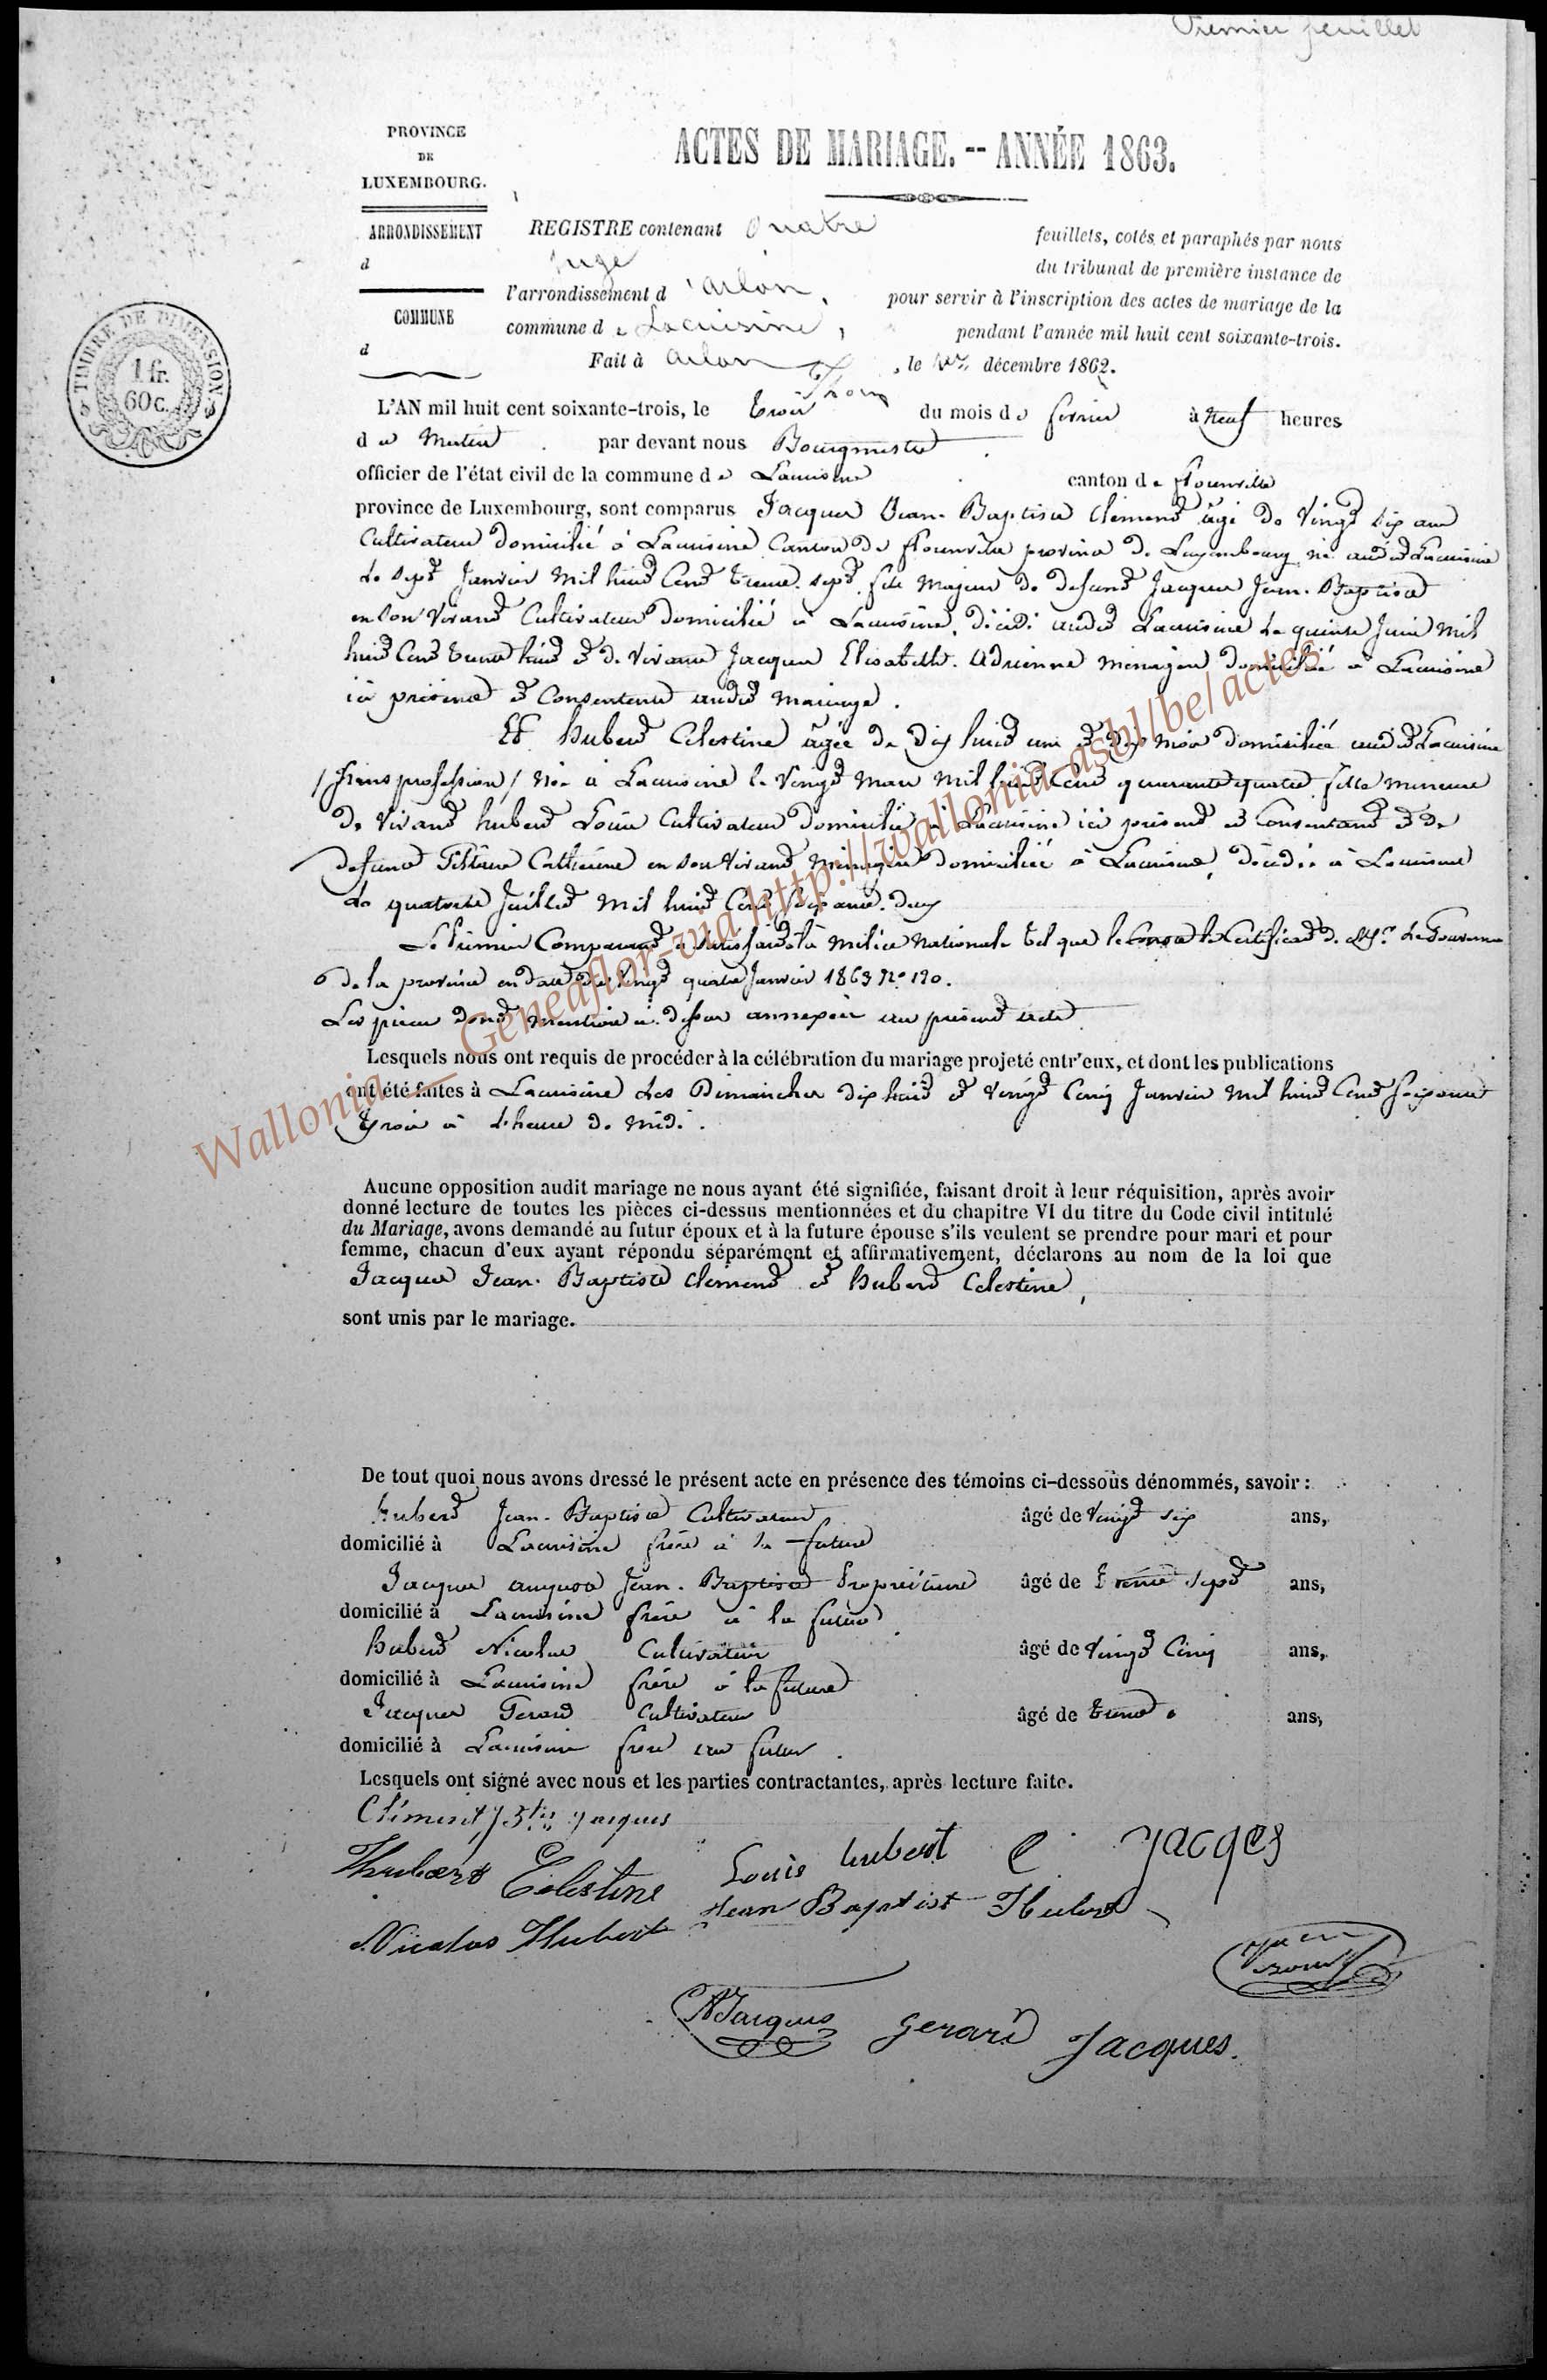 Premier feuillet
PROVINCE
DE
LUXEMBOURG.
ACTES DE MARIAGE. -- ANNÉE 1863.
ARRONDISSEMENT
d
COMMUNE
d
TIMBRE DE DIMENSION
1 fr.
60 c.
REGISTRE contenant quatre feuillets, cotés et paraphés par nous
juge du tribunal de première instance de
l'arrondissement d'Arlon, pour servir à l'inscription des actes de mariage de la
commune de Lacuisine, pendant l'année mil huit cent soixante-trois.
Fait à Arlon, le 1er décembre 1862.
L'AN mil huit cent soixante-trois, le trois du mois de février à neuf heures
du Matin par devant nous Bourgmestre
officier de l'état civil de la commune de Lacuisine canton de florenville
province de Luxembourg, sont comparus Jacques Jean-Baptiste Clement âgé de Vingt six ans
Cultivateur domicilié à Lacuisine Canton de florenville province de Luxembourg né audit Lacuisine
le sept Janvier Mil huit Cent trente-sept fils Majeur de defunt Jacques Jean-Baptiste
en son Vivant Cultivateur domicilié à Lacuisine, décédé audit Lacuisine le quinze Juin Mil
huit Cent trente huit et de Vivante Jacques Elisabeth-Adrienne Menagere domiciliée à Lacuisine
ici présente et Consentente audit Mariage.
Et Hubert Celestine âgée de Dix huit ans et dix Mois domiciliée audit Lacuisine
/ sans profession / née à Lacuisine le Vingt Mars Mil huit Cent quarante quatre fille mineure
de Vivant hubert Louis Cultivateur domicilié à Lacuisine ici présent et Consentant et de
defunte Catherine en son Vivant Menagere domiciliée à Lacuisine, décédée à Lacuisine
le quatorze Juillet Mil huit Cent soixante-deux
Le Premier Comparant a satisfait à la Milice Nationale tel que le Conste le Certificat de Mr. le Gouverneur
de la province en date du Vingt quatre Janvier 1863 No 120.
Les pieces dont Mention ci-dessus annexées au présent acte
Lesquels nous ont requis de procéder à la célébration du mariage projeté entr'eux, et dont les publications
ont été faites à Lacuisine les Dimanches dix huit et Vingt Cinq Janvier Mil huit Cent Soixante
trois à l'heure de Midi.
Aucune opposition audit mariage ne nous ayant été signifiée, faisant droit à leur réquisition, après avoir
donné lecture de toutes les pièces ci-dessus mentionnées et du chapitre VI du titre du Code civil intitulé
du Mariage, avons demandé au futur époux et à la future épouse s'ils veulent se prendre pour mari et pour
femme, chacun d'eux ayant répondu séparément et affirmativement, déclarons au nom de la loi que
Jacques Jean-Baptiste Clement et Hubert Celestine,
sont unis par le mariage.
De tout quoi nous avons dressé le présent acte en présence des témoins ci-dessous dénommés, savoir :
Hubert Jean-Baptiste Cultivateur âgé de Vingt six ans,
domicilié à Lacuisine frère à la future
Jacques auguste Jean-Baptiste Propriétaire âgé de trente sept ans,
domicilié à Lacuisine frère à la future
Hubert Nicolas Cultivateur âgé de Vingt Cinq ans,
domicilié à Lacuisine frère à la future
Jacques Gerard Cultivateur âgé de trente ans,
domicilié à Lacuisine frere au futur.
Lesquels ont signé avec nous et les parties contractantes, après lecture faite.
Clément J Bte Jacques
Hubert Célestine Louis hubert E Jacques
Nicolas Hubert Jean Baptist Hubert
AJacques Gerard Jacques.
Wallonia - Geneaflor-via http://wallonia-asbl/be/actes